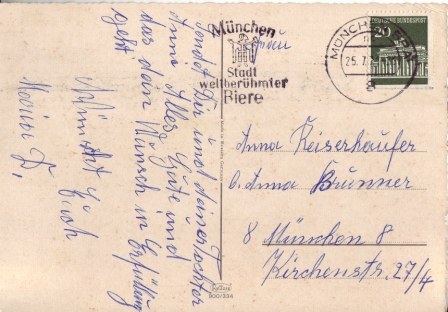 München
Stadt
weltberühmter
Biere
MÜNCHEN
25. 7.
8
20
DEUTSCHE BUNDESPOST
Frau
Anna Keiserhaufer
b. Anna Brunner
8 München 8
Kirchenstr. 27/4
sendet Dir und deiner Tochter
Anna Alles Gute und
das dein Wunsch in Erfüllung
geht
Euch
900/334